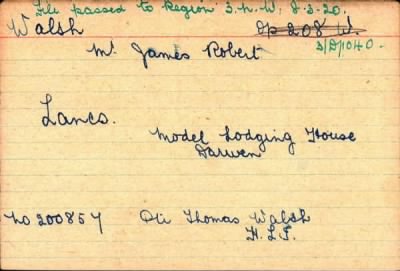 File passed to Region 3. N.W. 8.3-20.
Walsh
Op 208 W.
3/D/1040.
Mr James Robert
Lancs.
Model Lodging House
Darwen
No 200857 Pte Thomas Walsh
H.L.I.